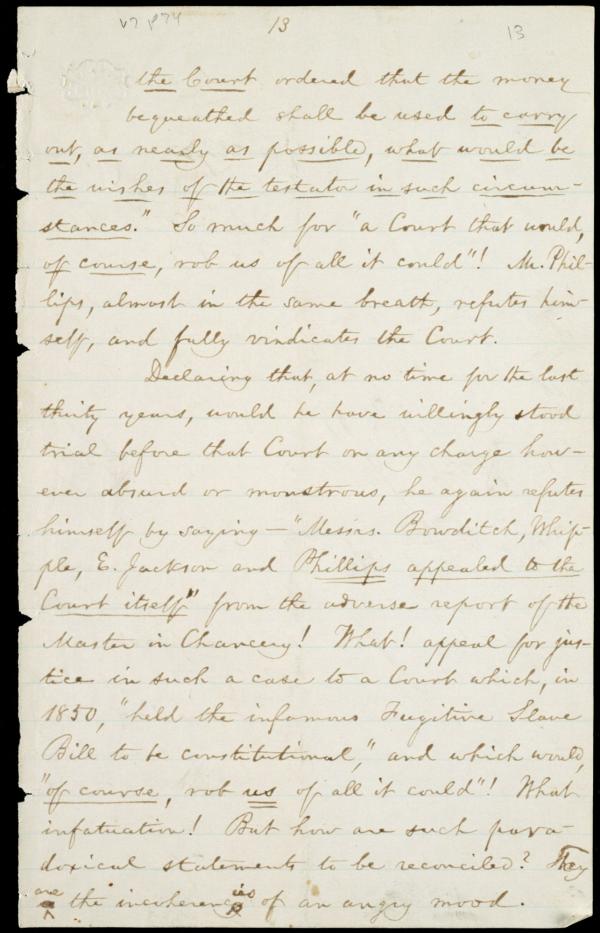 v7 p74
13
13
the Court ordered that the money
bequeathed shall be used to carry
out, as nearly as possible, what would be
the wishes of the testator in such circum-
stances." So much for "a Court that would,
of course, rob us of all it could"! Mr. Phil-
lips, almost in the same breath, refutes him-
self, and fully vindicates the Court.
Declaring that, at no time for the last
thirty years, would he have willingly stood
trial before that Court on any charge how-
ever absurd or monstrous, he again refutes
himself by saying—"Messrs. Bowditch, Whip-
ple, E. Jackson and Phillips appealed to the
Court itself" from the adverse report of the
Master in Chancery! What! appeal for jus-
tice in such a case to a Court which, in
1850, "held the infamous Fugitive Slave
Bill to be constitutional," and which would,
"of course, rob us of all it could"! What
infatuation! But how are such para-
doxical statements to be reconciled? They
are the incoherencies of an angry mood.